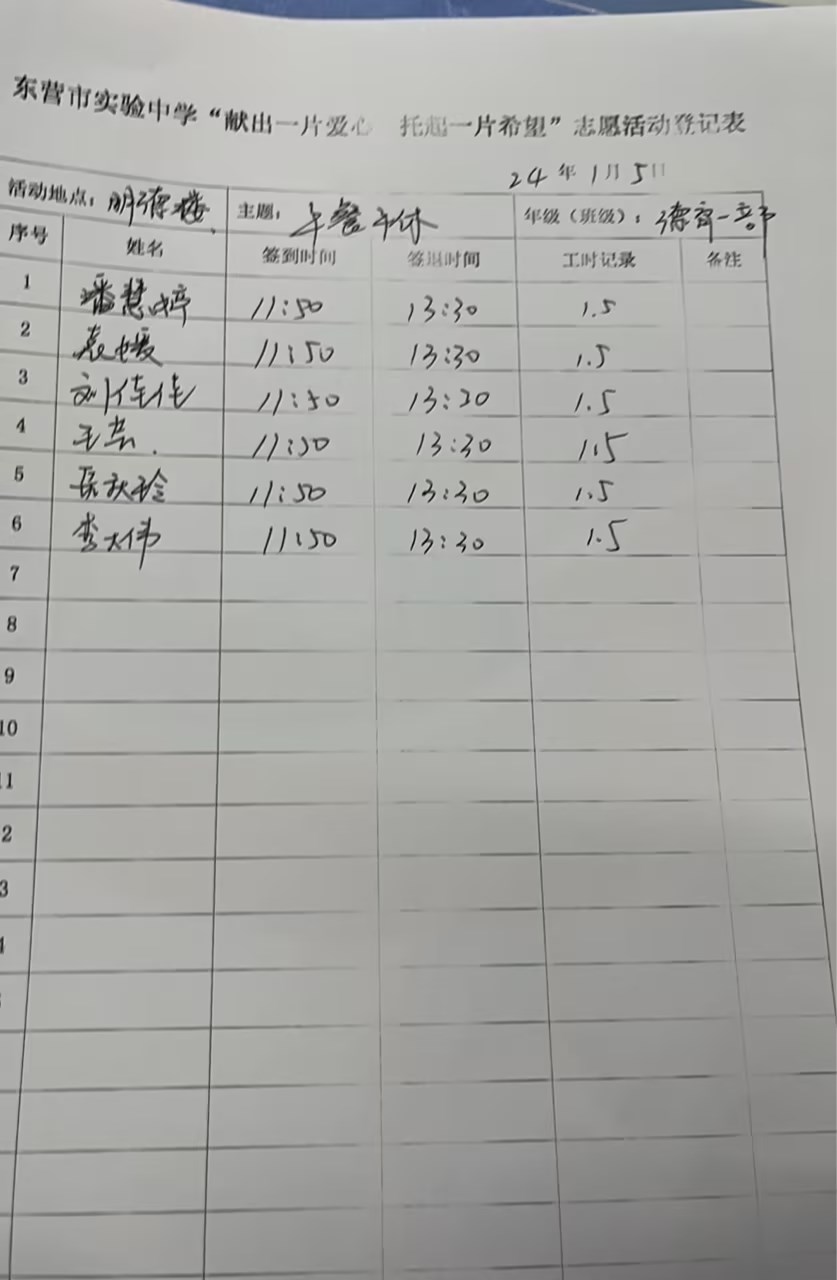 东营市实验中学“献出一片爱心 托起一片希望”志愿活动登记表
24年1月5日
活动地点：明德楼 主题：午餐午休 年级（班级）：德育一部
序号 姓名 签到时间 签退时间 工时记录 备注
1 潘慧婷 11:50 13:30 1.5
2 袁媛 11:50 13:30 1.5
3 刘佳佳 11:50 13:30 1.5
4 11:50 13:30 1.5
5 11:50 13:30 1.5
6 李大伟 11:50 13:30 1.5
7
8
9
10
11
2
3